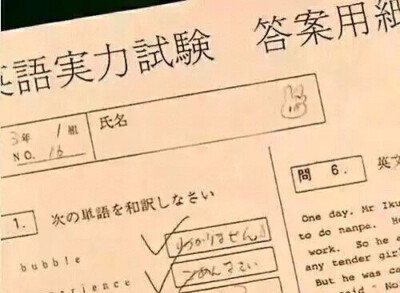 英語実力試験 答案用紙
3年 1組
NO. 16
氏名
1. 次の単語を和訳しなさい
bubble
わかりません
ごめんなさい
問 6. 英文
One day, Mr Iku
to do nanpa. He
work. So he a
any tender girl
But he was ca
said - No